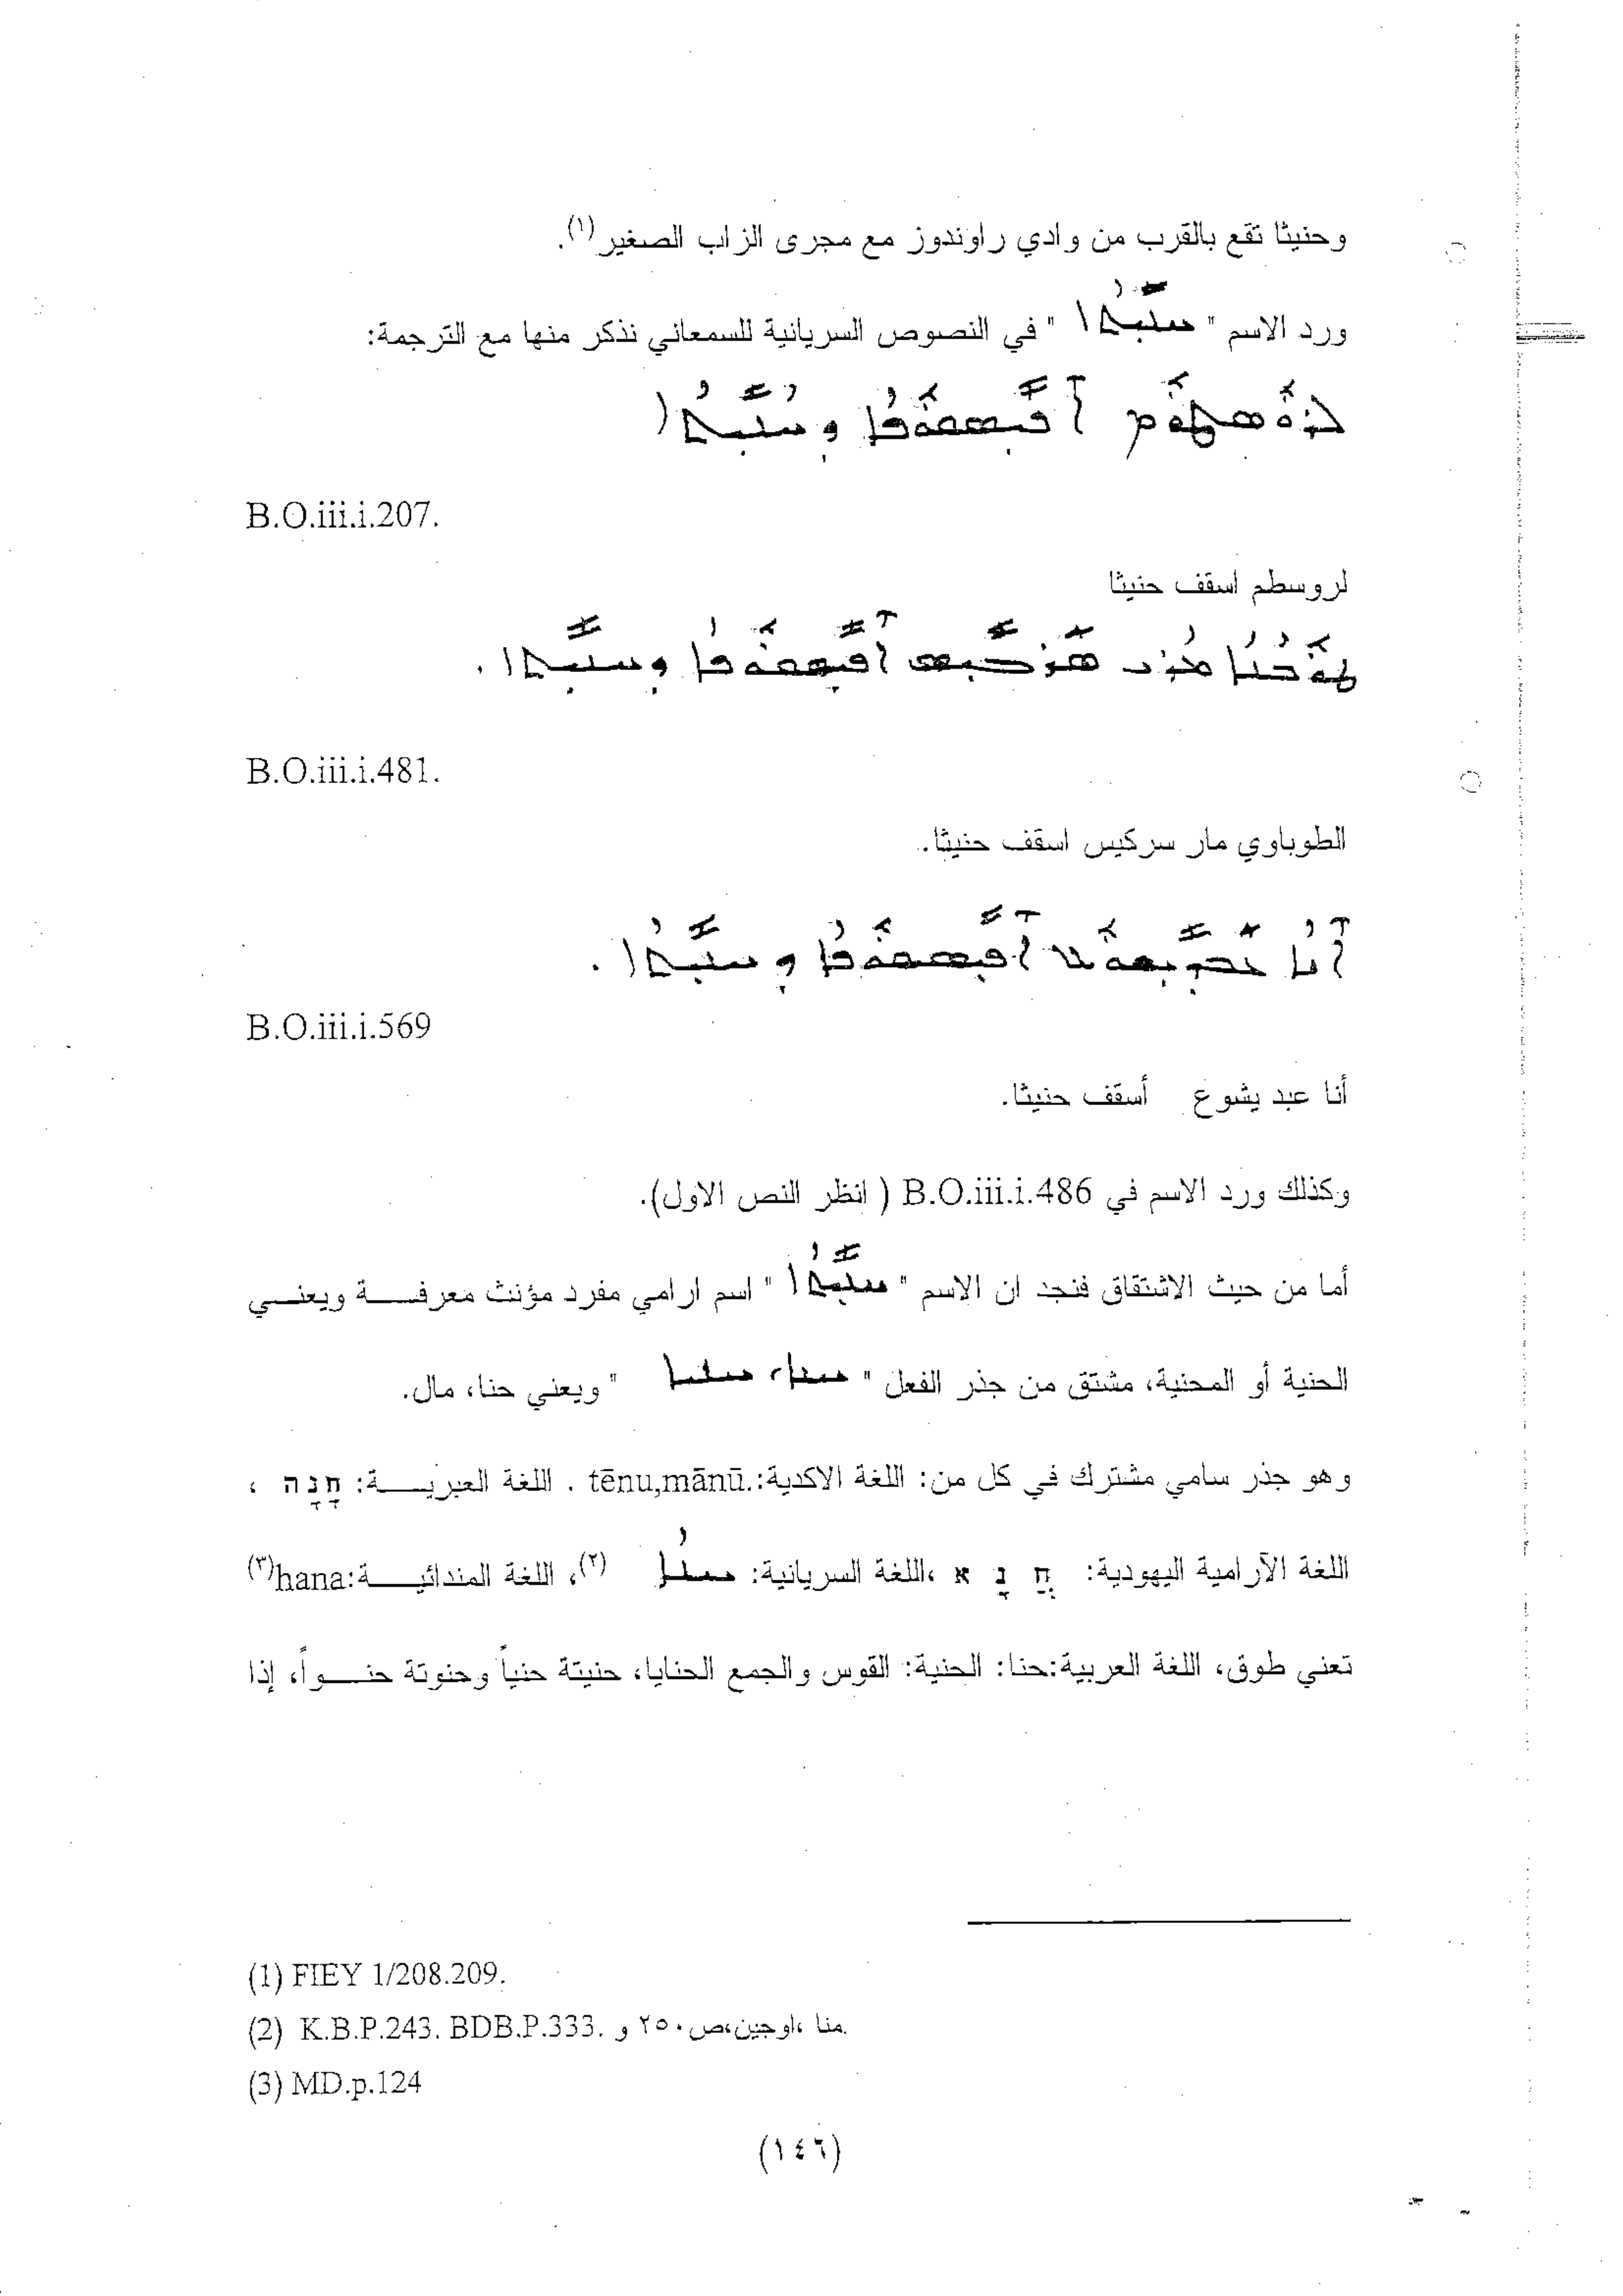 وحنيثا تقع بالقرب من وادي راوندوز مع مجرى الزاب الصغير(١).
ورد الاسم " ܚܢܝܬܐ " في النصوص السريانية للسمعاني نذكر منها مع الترجمة:
ܠܪܘܣܛܘܡ ܐܦܝܣܩܘܦܐ ܕܚܢܝܬܐ
B.O.iii.i.207.
لروسطم اسقف حنيثا
ܛܘܒܢܐ ܡܪܝ ܣܪܟܝܣ ܐܦܝܣܩܘܦܐ ܕܚܢܝܬܐ.
B.O.iii.i.481.
الطوباوي مار سركيس اسقف حنيثا.
ܐܢܐ ܥܒܕܝܫܘܥ ܐܦܝܣܩܘܦܐ ܕܚܢܝܬܐ.
B.O.iii.i.569
أنا عبد يشوع أسقف حنيثا.
وكذلك ورد الاسم في B.O.iii.i.486 ( انظر النص الاول).
أما من حيث الاشتقاق فنجد ان الاسم " ܚܢܝܬܐ " اسم ارامي مفرد مؤنث معرفة ويعني
الحنية أو المحنية، مشتق من جذر الفعل " " ويعني حنا، مال.
وهو جذر سامي مشترك في كل من: اللغة الاكدية:.tēnu,mānū . اللغة العبرية: חָנָה ،
اللغة الآرامية اليهودية: חֲ נָ א ،اللغة السريانية: ܚܢܐ (٢)، اللغة المندائية:hana(٣)
تعني طوق، اللغة العربية:حنا: الحنية: القوس والجمع الحنايا، حنيتة حنياً وحنوتة حنواً، إذا
(1) FIEY 1/208.209.
(2) K.B.P.243. BDB.P.333. منا ،اوجين،ص٢٥٠ و.
(3) MD.p.124
(١٤٦)